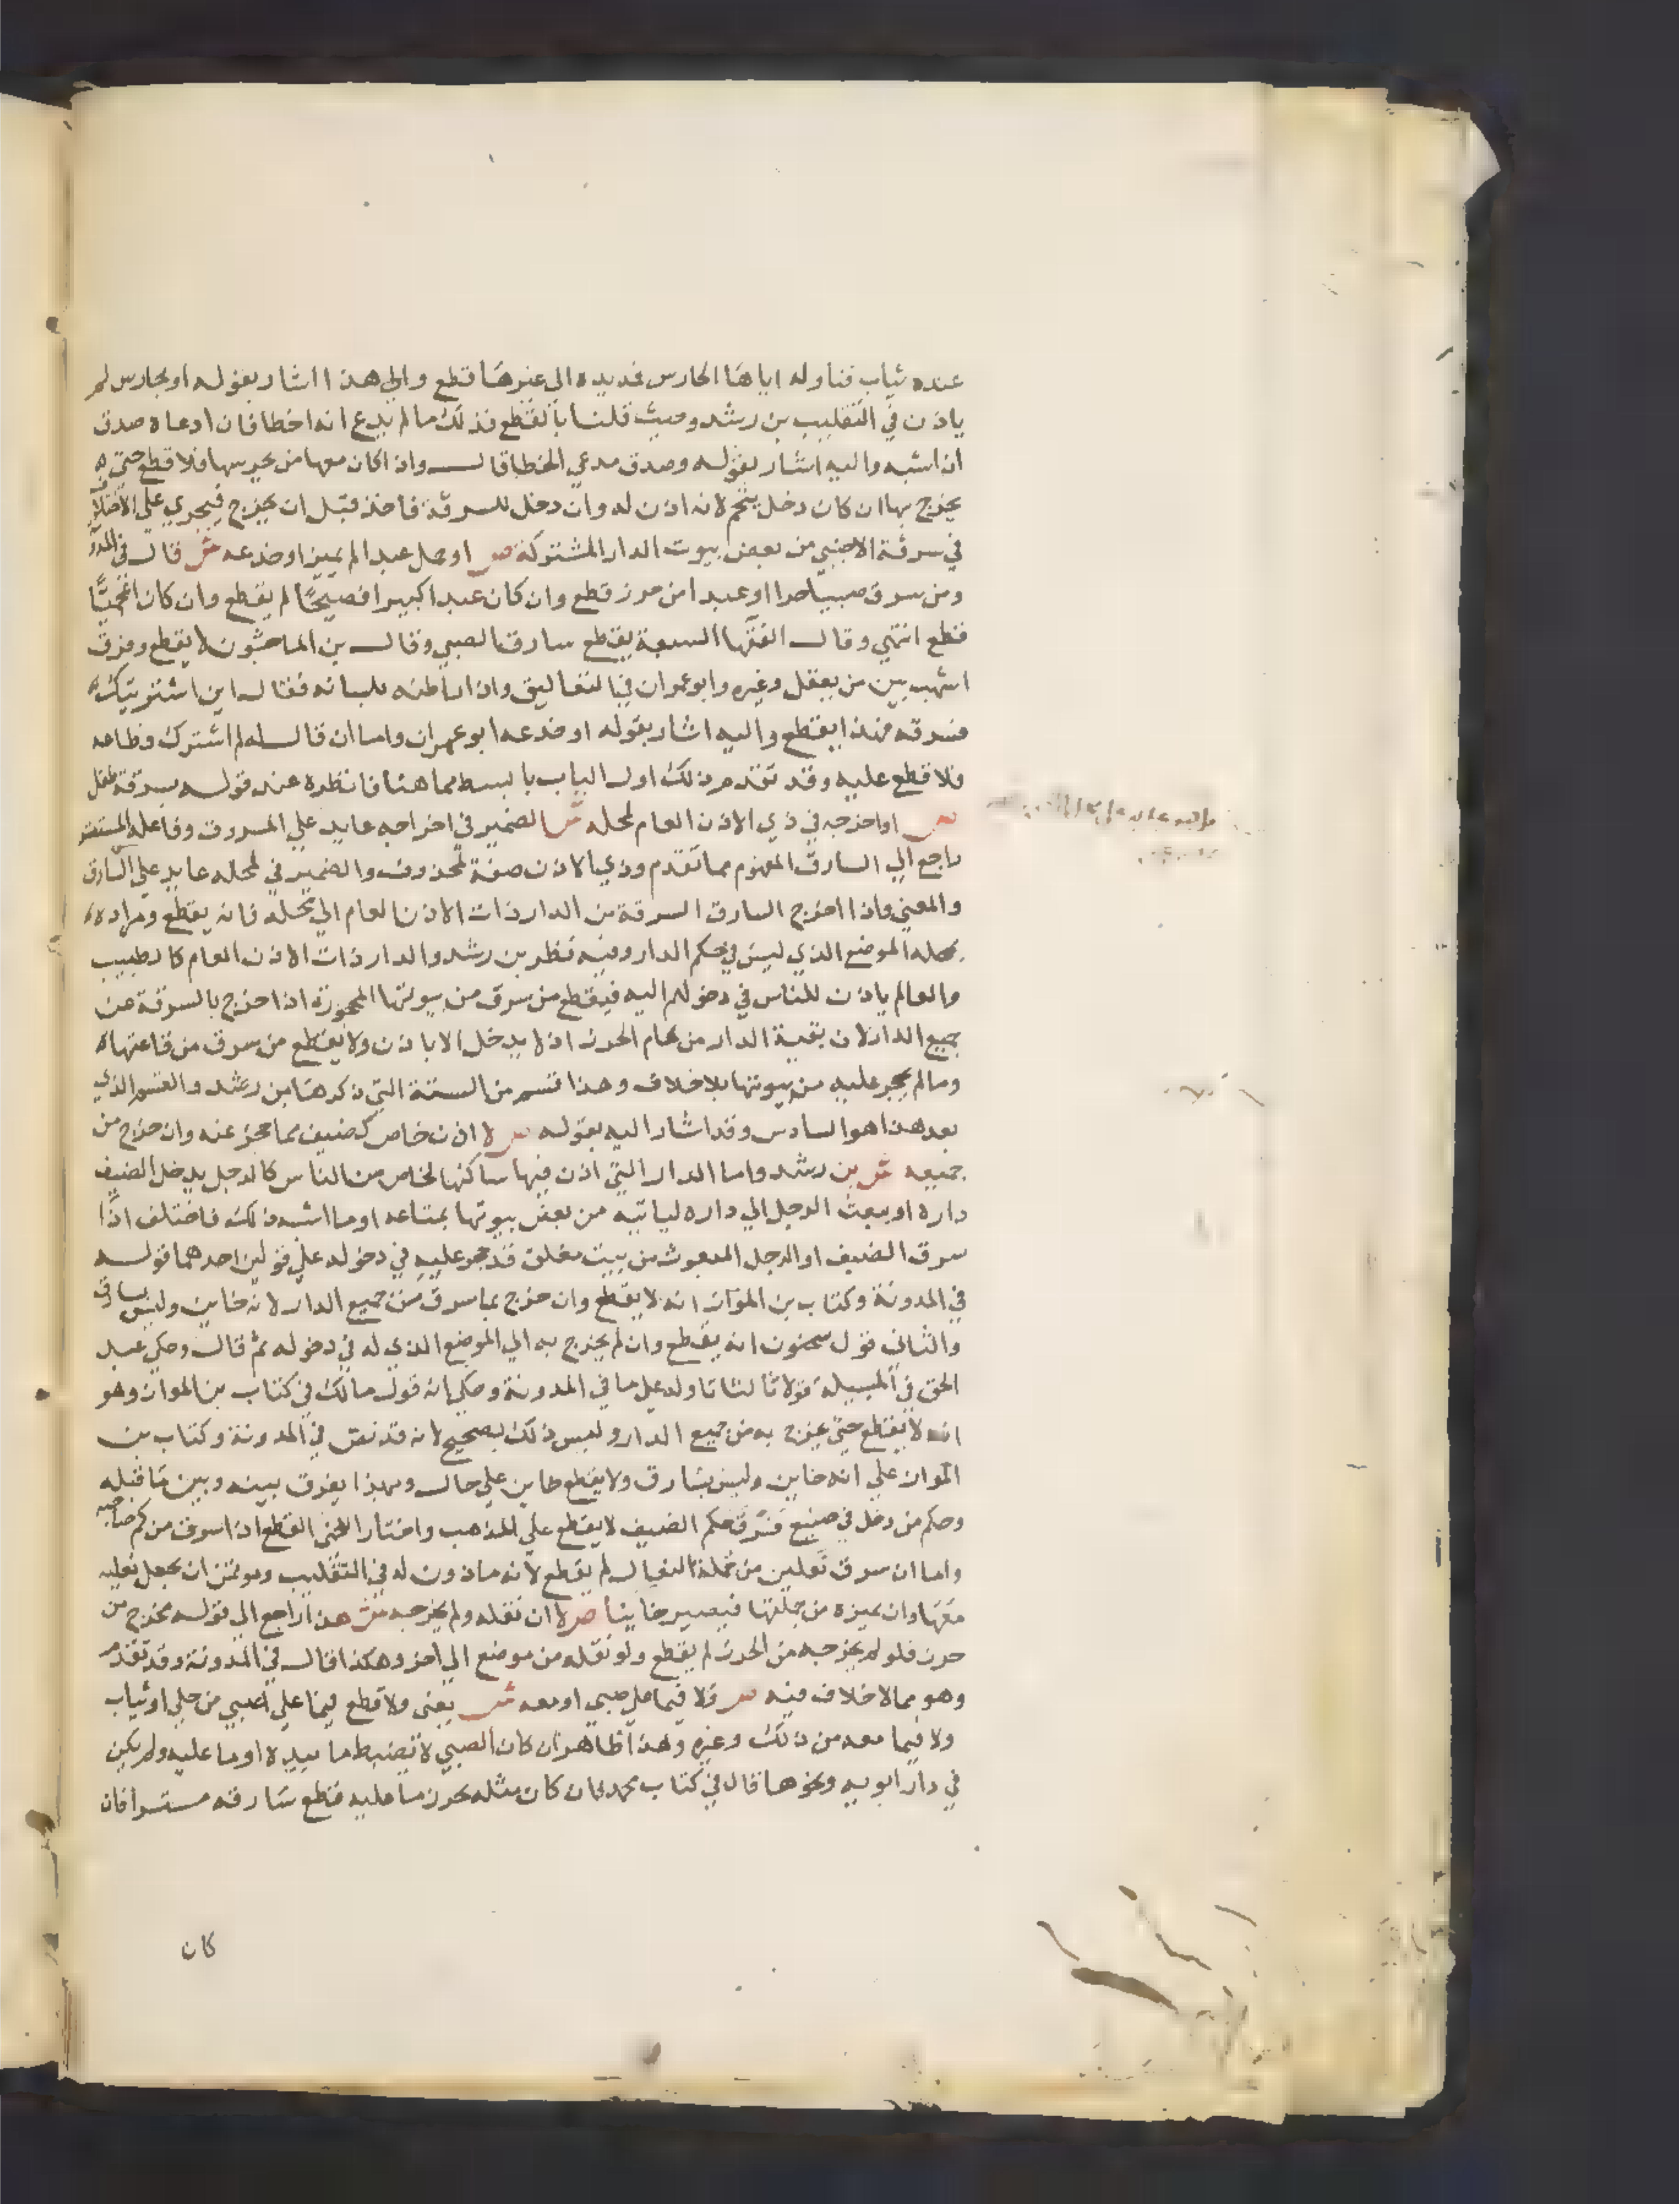 عنده ثياب فناوله اياها الحارس فمد يده الى غيرها قطع والى هذا اشار بقوله او بحارس لم
ياذن في التقليب بن رشد وحيث قلنا بالقطع فذلك مالم يدع انه اخطا فان ادعاه صدق
ان اشبه واليه اشار بقوله وصدق مدعي الخطا قال واذا كان معها من يحرسها فلا قطع حتى
يخرج بها ان كان دخل يتحمم لانه اذن له وان دخل للسرقة فاخذ قبل ان يخرج فيجري على الاختلاف
في سرقة الاجنبي من بعض بيوت الدار المشتركة ص او حمل عبدا لم يميز او خدعه ش قال في المدونة
ومن سرق صبيا حرا او عبدا من حرز قطع وان كان عبدا كبيرا فصيحا لم يقطع وان كان اعجميا
قطع انتهي وقال الفقها السبعة يقطع سارق الصبي وقال بن الماجشون لا يقطع وفرق
اشهب بين من يعقل وغيره وابو عمران في التعاليق واذا راطنه بلسانه فقال اين اشتريتك
فسرقه فهذا يقطع واليه اشار بقوله او خدعه ابو عمران واما ان قال له لم اشترك وطاعه
فلا قطع عليه وقد تقدم ذلك اول الباب بابسط مما هنا فانظره عند قوله بسرقة طفل
ص او اخرجه في ذي الاذن العام لمحله ش الضمير في اخراجه عايد على المسروق وفاعله المستتر
راجع الي السارق المفهوم مما تقدم وذي الاذن صفة لمحذوف والضمير في لمحله عايد علي السارق
والمعني واذا اخرج السارق السرقة من الدار ذات الاذن العام الي محله فانه يقطع ومراده
بمحله الموضع الذي ليس في حكم الدار وفيه نظر بن رشد والدار ذات الاذن العام كالطبيب
والعالم ياذن للناس في دخولهم اليه فيقطع من سرق من بيوتها المحجورة اذا خرج بالسرقة عن
جميع الدار لان بقية الدار من تمام الحرز اذ لا يدخل الا باذن ولا يقطع من سرق من قاعتها
ومالم يحجر عليه من بيوتها بلا خلاف وهذا قسم من الستة التي ذكرها بن رشد والقسم الذي
بعد هذا هو السادس وقد اشار اليه بقوله ص لا اذن خاص كضيف مما حجر عنه وان خرج من
جميعه ش بن رشد واما الدار التي اذن فيها ساكنها لخاص من الناس كالرجل يدخل الضيف
داره او يبعث الرجل الي داره لياتيه من بعض بيوتها بمتاعه او ما اشبه ذلك فاختلف اذا
سرق الضيف او الرجل المبعوث من بيت مغلق قد حجر عليه في دخوله علي قولين احدهما قوله
في المدونة وكتاب بن المواز انه لا يقطع وان خرج بما سرق من جميع الدار لانه خاين وليس بسارق
والثاني قول سحنون انه يقطع وان لم يخرج به الي الموضع الذي له في دخوله ثم قال وحكي عبد
الحق في المسيلة قولا ثالثا تاوله علي ما في المدونة وحكي انه قول مالك في كتاب بن المواز وهو
انه لا يقطع حتى يخرج به من جميع الدار وليس ذلك بصحيح لانه قد نص في المدونة وكتاب بن
المواز علي انه خاين وليس بسارق ولا يقطع خاين علي حال وبهذا يفرق بينه وبين ما قبله
وحكم من دخل في صنيع فسرق حكم الضيف لا يقطع علي المذهب واختار اللخمي القطع اذا سرق من كم صاحبه
واما ان سرق نعلين من جملة النعال لم يقطع لانه ماذون له في التقليب وموتمن ان يجعل نعليه
معها وان يميزه من جملتها فيصير خاينا ص لا ان نقله ولم يخرجه ش هذا راجع الي قوله مخرج من
حرز فلو لم يخرجه من الحرز لم يقطع ولو نقله من موضع الي اخر وهكذا قال في المدونة وقد تقدم
وهو مما لا خلاف فيه ص ولا فيما علي صبي او معه ش يعني ولا قطع فيما علي الصبي من حلي او ثياب
ولا فيما معه من ذلك وغيره وهذا ظاهر ان كان الصبي لا يضبط ما بيده او ما عليه ولم يكن
في دار ابويه ونحوها قال في كتاب محمد فان كان مثله يحرز ما عليه قطع سارقه مستسرا فان
كان